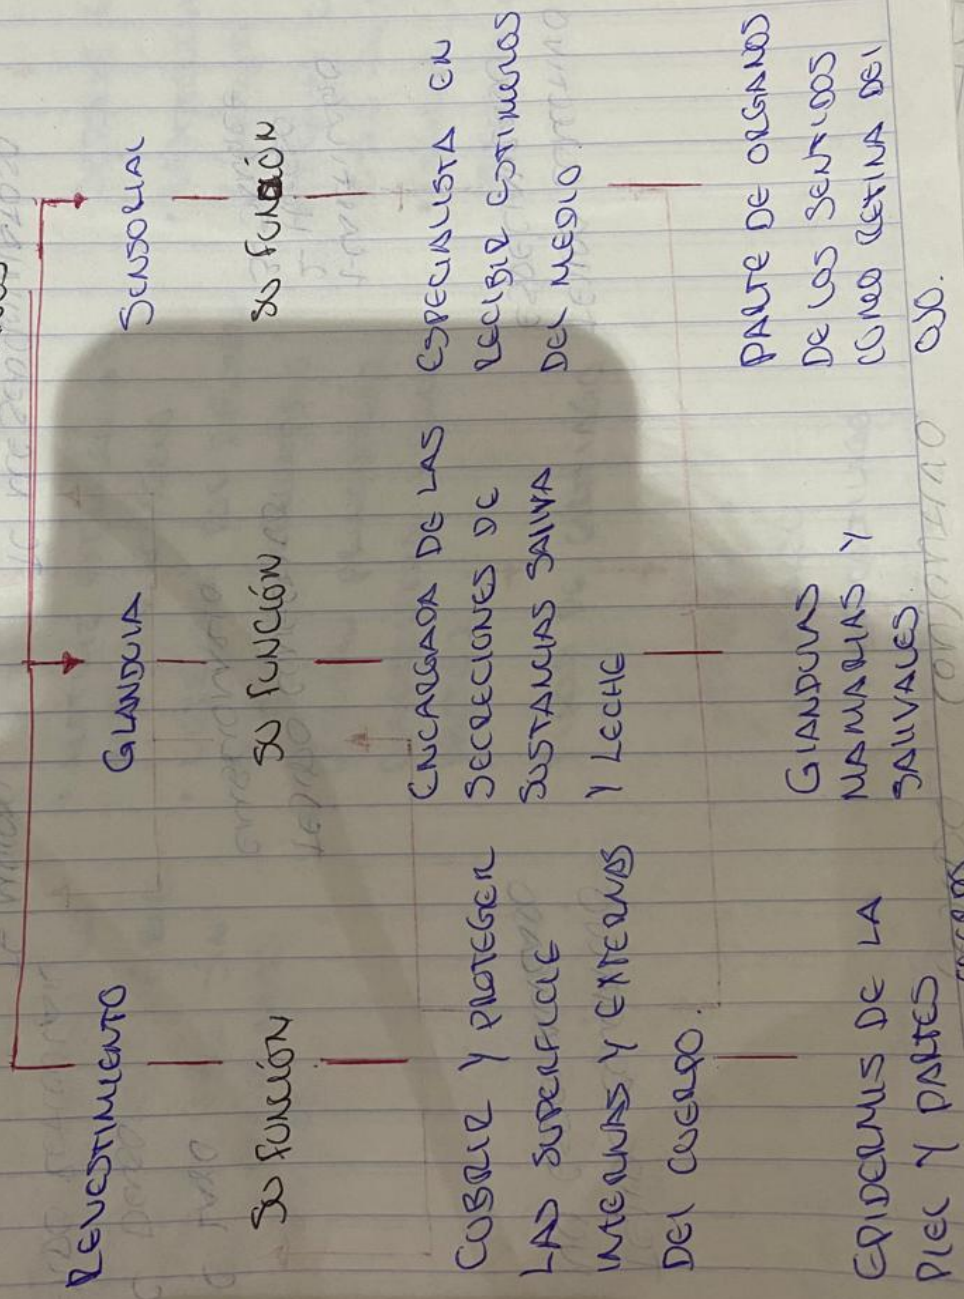 REVESTIMIENTO
SU FUNCIÓN
CUBRIR Y PROTEGER
LAS SUPERFICIE
INTERNAS Y EXTERNAS
DEL CUERPO.
EPIDERMIS DE LA
PIEL Y PARTES
GLANDULA
SU FUNCIÓN
ENCARGADA DE LAS
SECRECIONES DE
SUSTANCIAS SALIVA
Y LECHE
GLANDULAS
MAMARIAS Y
SALIVALES.
SENSORIAL
SU FUNCIÓN
ESPECIALISTA EN
RECIBIR ESTIMULOS
DEL MEDIO.
PARTE DE ORGANOS
DE LOS SENTIDOS
COMO RETINA DEL
OJO.